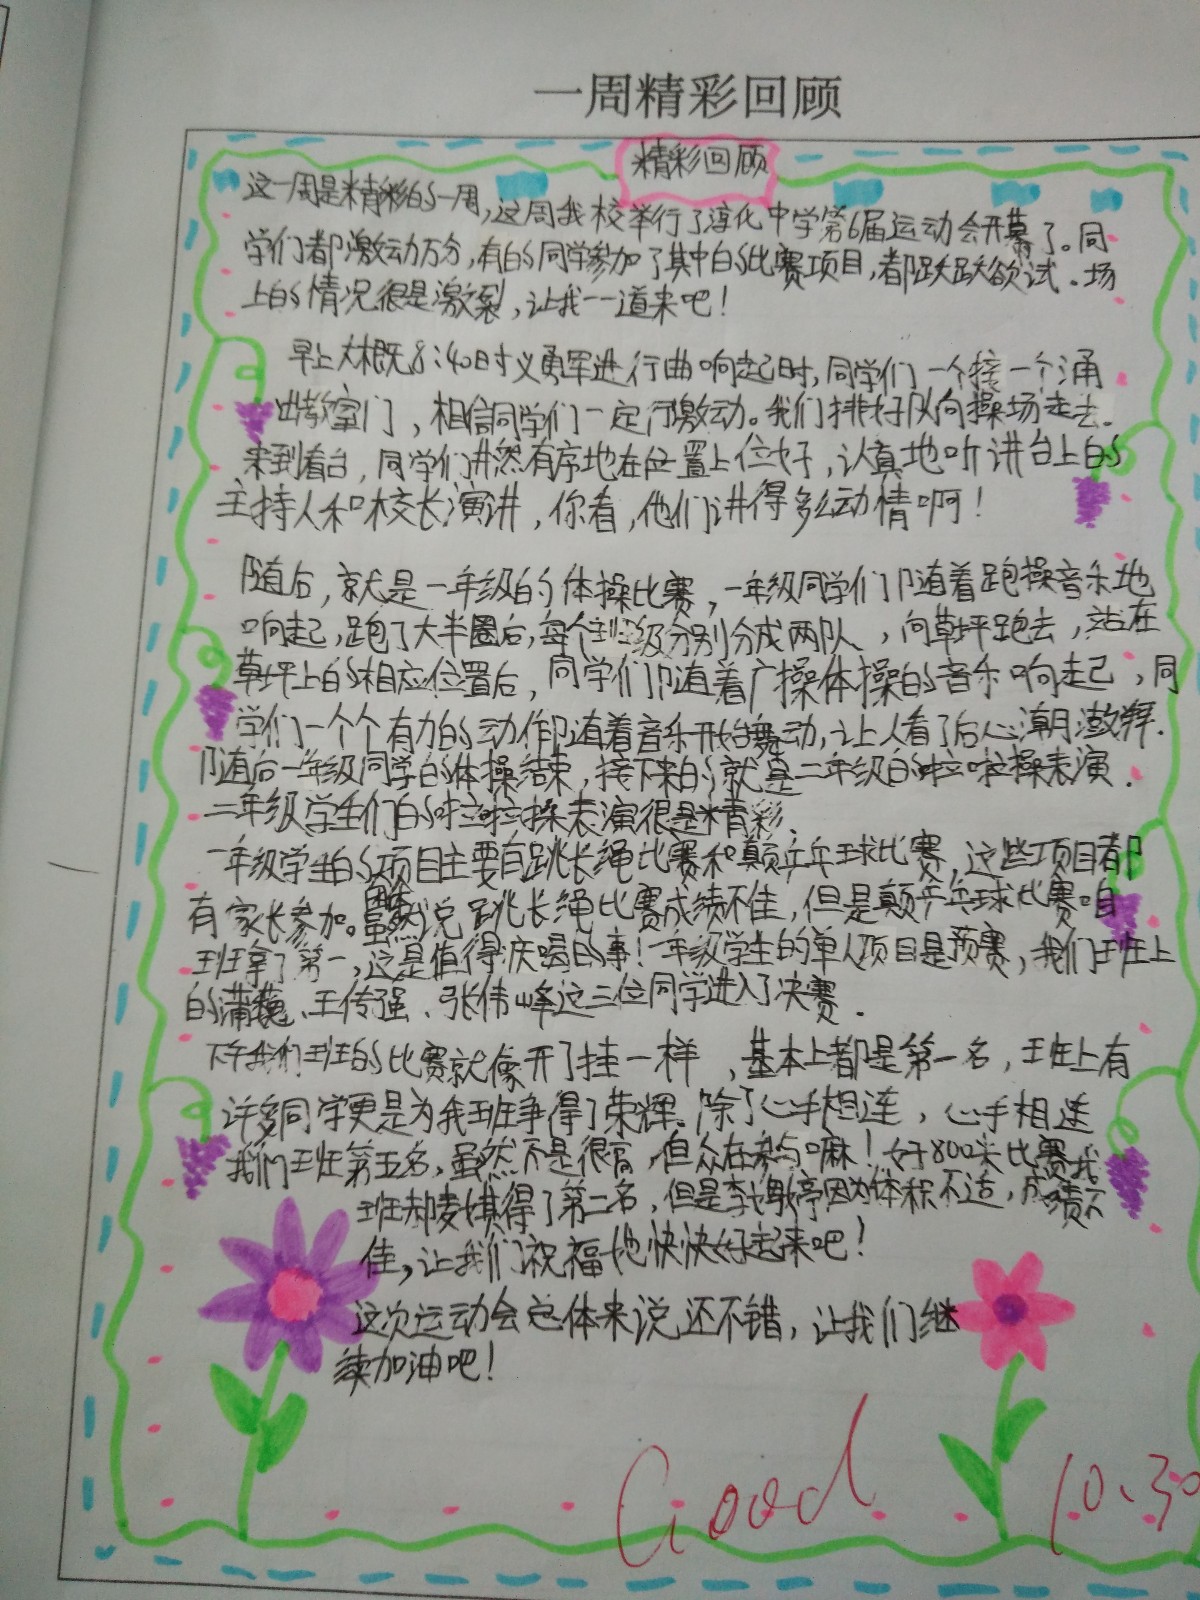 一周精彩回顾
精彩回顾
这一周是精彩的一周，这周我校举行了淳化中学第6届运动会开幕了。同
学们都激动万分，有的同学参加了其中的比赛项目，都跃跃欲试．场
上的情况很是激裂，让我一一道来吧！
早上大概8:40时义勇军进行曲响起时，同学们一个接一个涌
出教室门，相信同学们一定很激动。我们排好队向操场走去．
来到看台，同学们井然有序地在位置上位好，认真地听讲台上的
主持人和校长演讲，你看，他们讲得多么动情啊！
随后，就是一年级的体操比赛，一年级同学们随着跑操音乐地
响起，跑了大半圈后，每个班级分别分成两队，向草坪跑去，站在
草坪上的相应位置后，同学们随着广操体操的音乐响起，同
学们一个个有力的动作随着音乐开始舞动，让人看了后心潮澎湃．
随后一年级同学的体操结束，接下来的就是二年级的啦啦操表演．
二年级学生们的啦啦操表演很是精彩．
一年级学生的项目主要有跳长绳比赛和颠乒乓球比赛，这些项目都
有家长参加。虽然说跳长绳比赛成绩不佳，但是颠乒乓球比赛咱
班拿了第一，这是值得庆喝的事！一年级学生的单人项目是预赛，我们班上
的蒲巍、王传强、张伟峰这三位同学进入了决赛．
下午我们班的比赛就像开了挂一样，基本上都是第一名，班上有
许多同学更是为我班争得了荣辉．除了心手相连，心手相连
我们班第五名，虽然不是很高，但众在参与嘛！好800米比赛我
班郝凌媒得了第二名，但是李亭因为体积不适，成绩不
佳，让我们祝福他快快好起来吧！
这次运动会总体来说还不错，让我们继
续加油吧！
Good
10.30